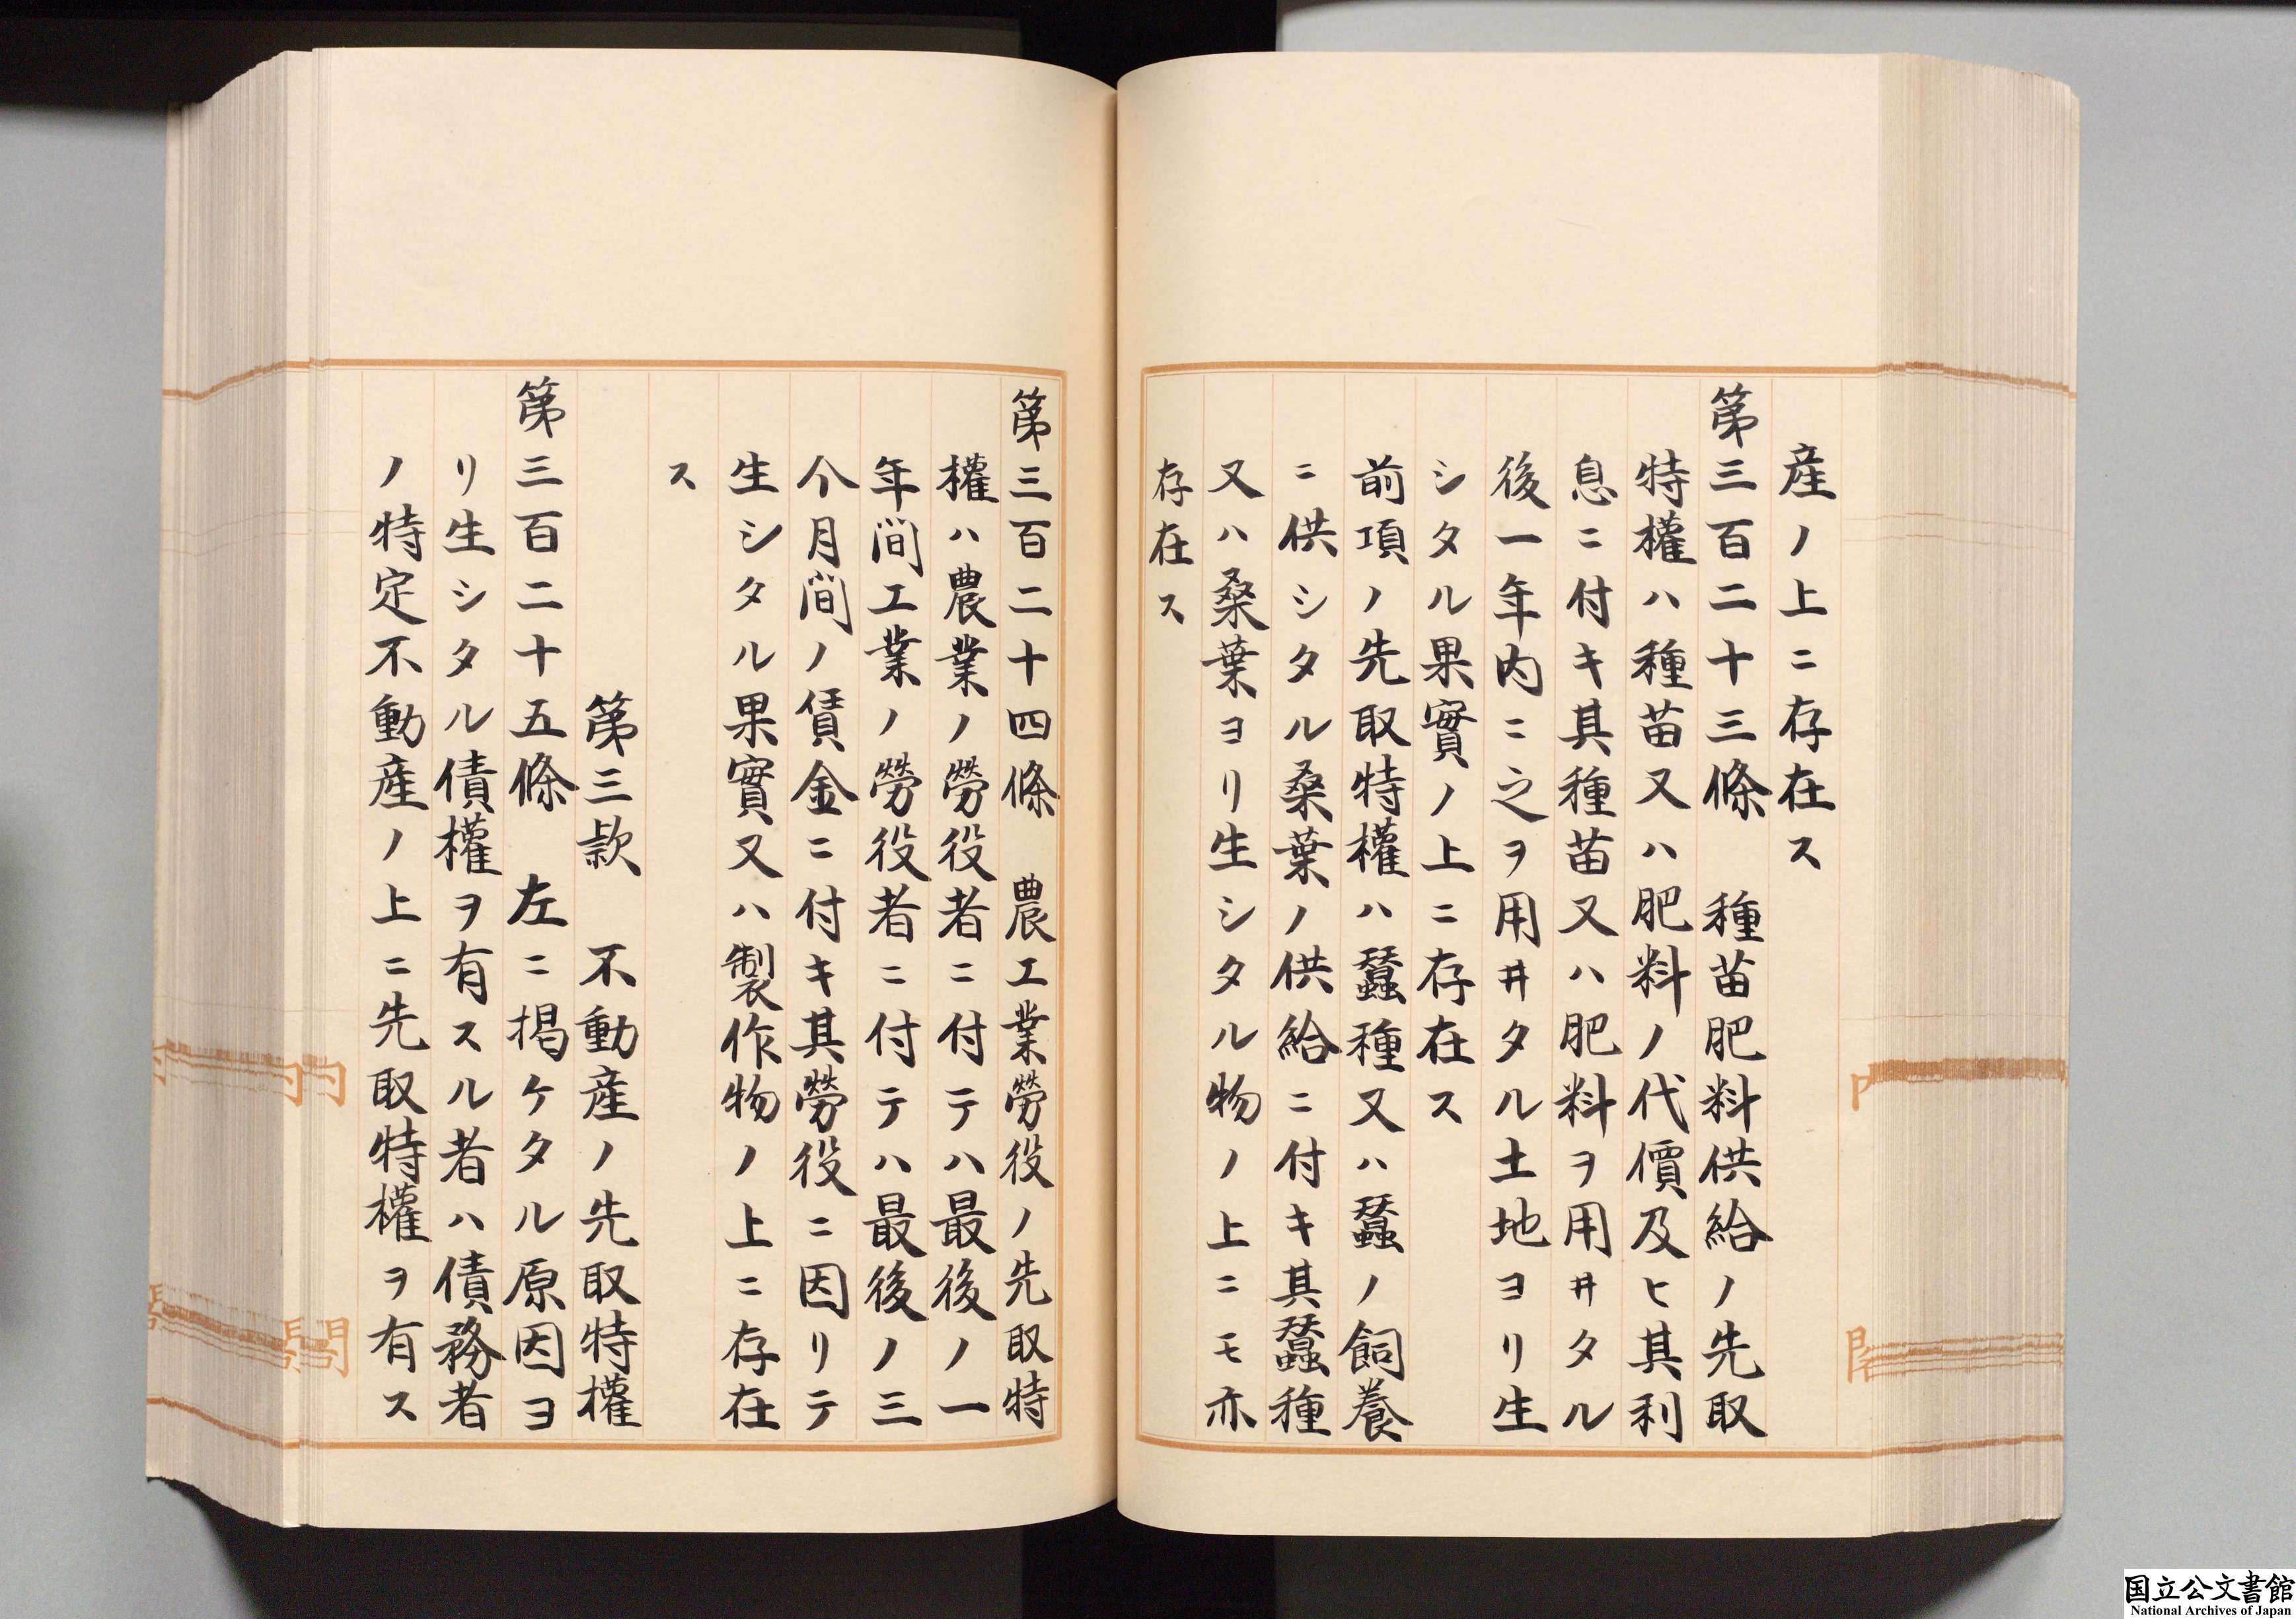 産ノ上ニ存在ス
第三百二十三條　種苗肥料供給ノ先取
特權ハ種苗又ハ肥料ノ代價及ヒ其利
息ニ付キ其種苗又ハ肥料ヲ用井タル
後一年内ニ之ヲ用井タル土地ヨリ生
シタル果實ノ上ニ存在ス
前項ノ先取特權ハ蠶種又ハ蠶ノ飼養
ニ供シタル桑葉ノ供給ニ付キ其蠶種
又ハ桑葉ヨリ生シタル物ノ上ニモ亦
存在ス
第三百二十四條　農工業勞役ノ先取特
權ハ農業ノ勞役者ニ付テハ最後ノ一
年間工業ノ勞役者ニ付テハ最後ノ三
个月間ノ賃金ニ付キ其勞役ニ因リテ
生シタル果實又ハ製作物ノ上ニ存在
ス
第三款　不動産ノ先取特權
第三百二十五條　左ニ揭ケタル原因ヨ
リ生シタル債權ヲ有スル者ハ債務者
ノ特定不動産ノ上ニ先取特權ヲ有ス
国立公文書館
National Archives of Japan